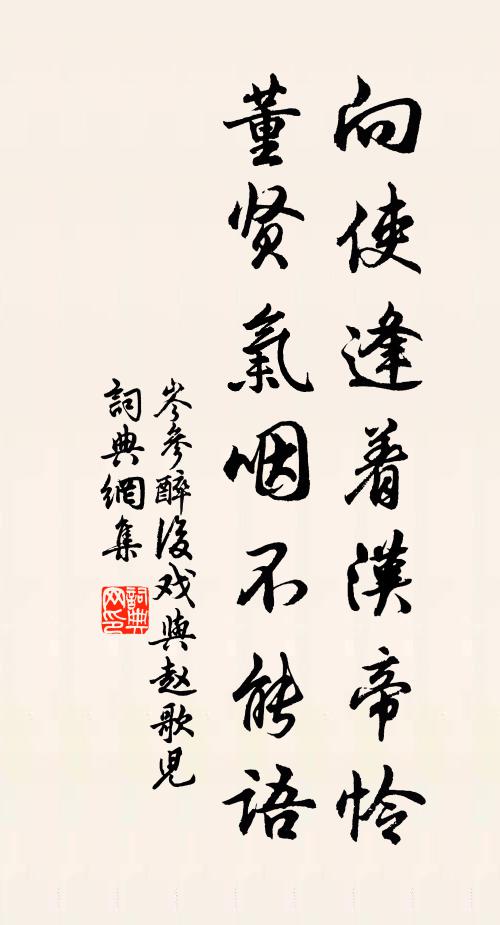 向使逢着漢帝怜
董贤氣咽不能語
岑參醉後戏與赵歌児
詞典網集
詞典网印